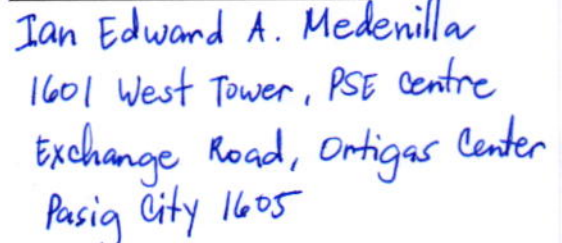 Ian Edward A. Medenilla
1601 West Tower, PSE Centre
Exchange Road, Ortigas Center
Pasig City 1605